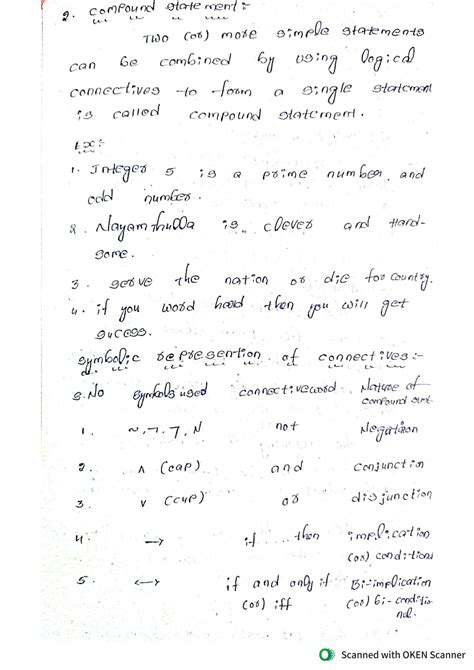 2. compound statement:-
Two (or) more simple statements
can be combined by using logical
connectives to form a single statement
is called compound statement.
Ex:-
1. Integer 5 is a prime number and
odd number.
2. Nayamthulla is clever and Hand-
some.
3. serve the nation or die for country.
4. if you word hard then you will get
success.
symbolic represention of connectives:-
S.No symbols used connective word Nature of
compound stmt
1. ~, ¬, 7, N not Negation
2. ∧ (cap) and conjunction
3. ∨ (cup) or disjunction
4. → if . . then implication
(or) conditional
5. ↔ if and only if Bi-implication
(or) iff (or) bi-conditio
nal.
Scanned with OKEN Scanner